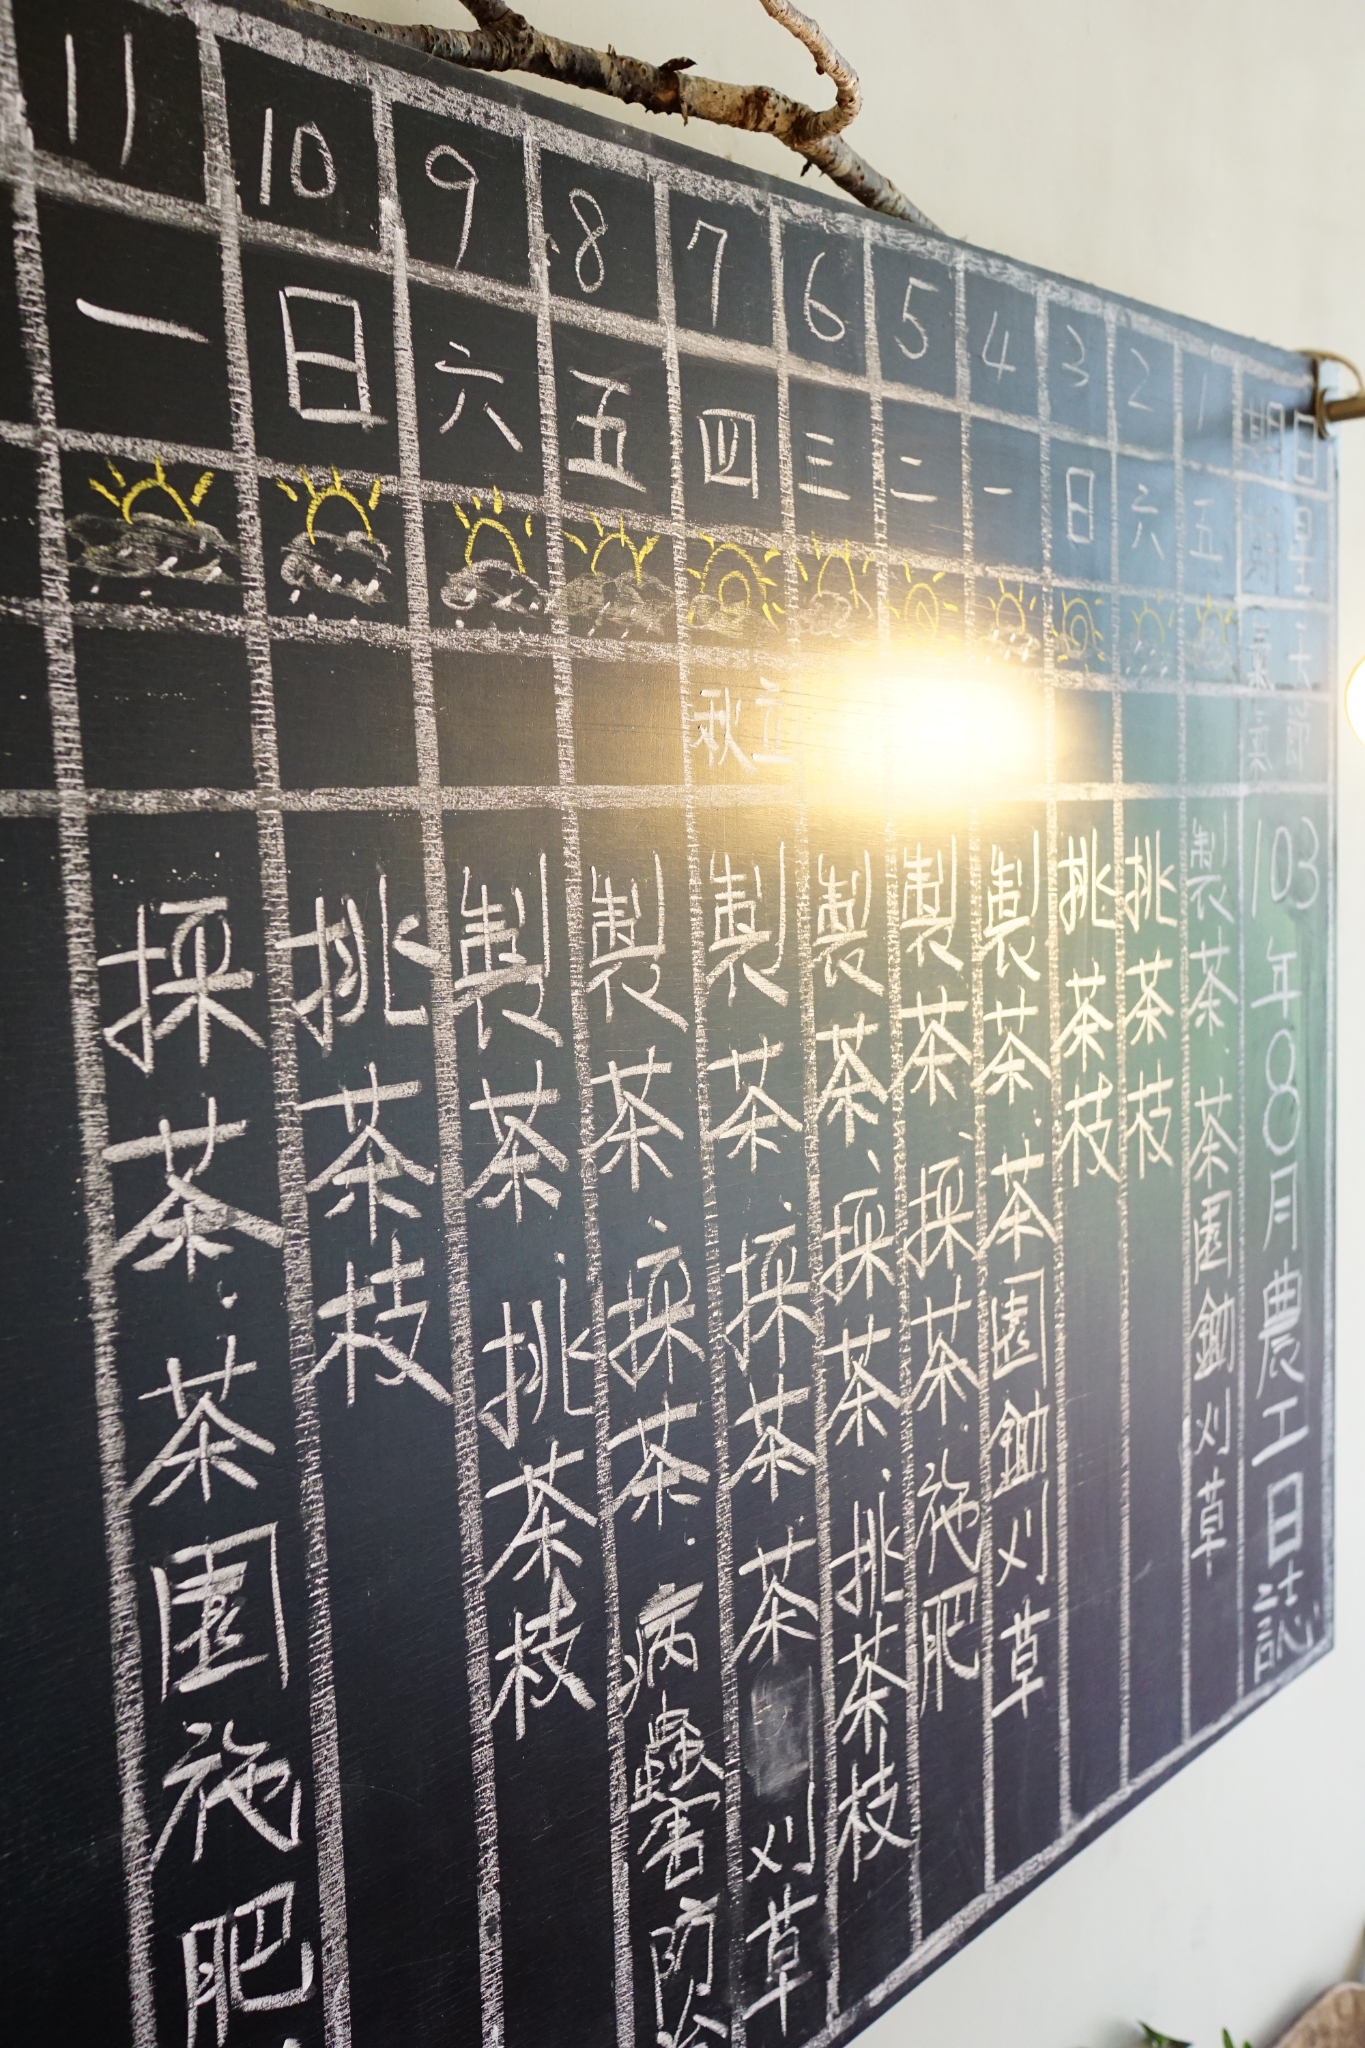 日期
星期
天氣
節氣
103年08月農工日誌
1
五
製茶.茶園鋤刈草
2
六
挑茶枝
3
日
挑茶枝
4
一
製茶.茶園鋤刈草
5
二
製茶、採茶.施肥
6
三
製茶、採茶.挑茶枝
7
四
立秋
製茶.採茶 茶 刈草
8
五
製茶.採茶.病蟲害防
9
六
製茶.挑茶枝
10
日
挑茶枝
11
一
採茶.茶園施肥